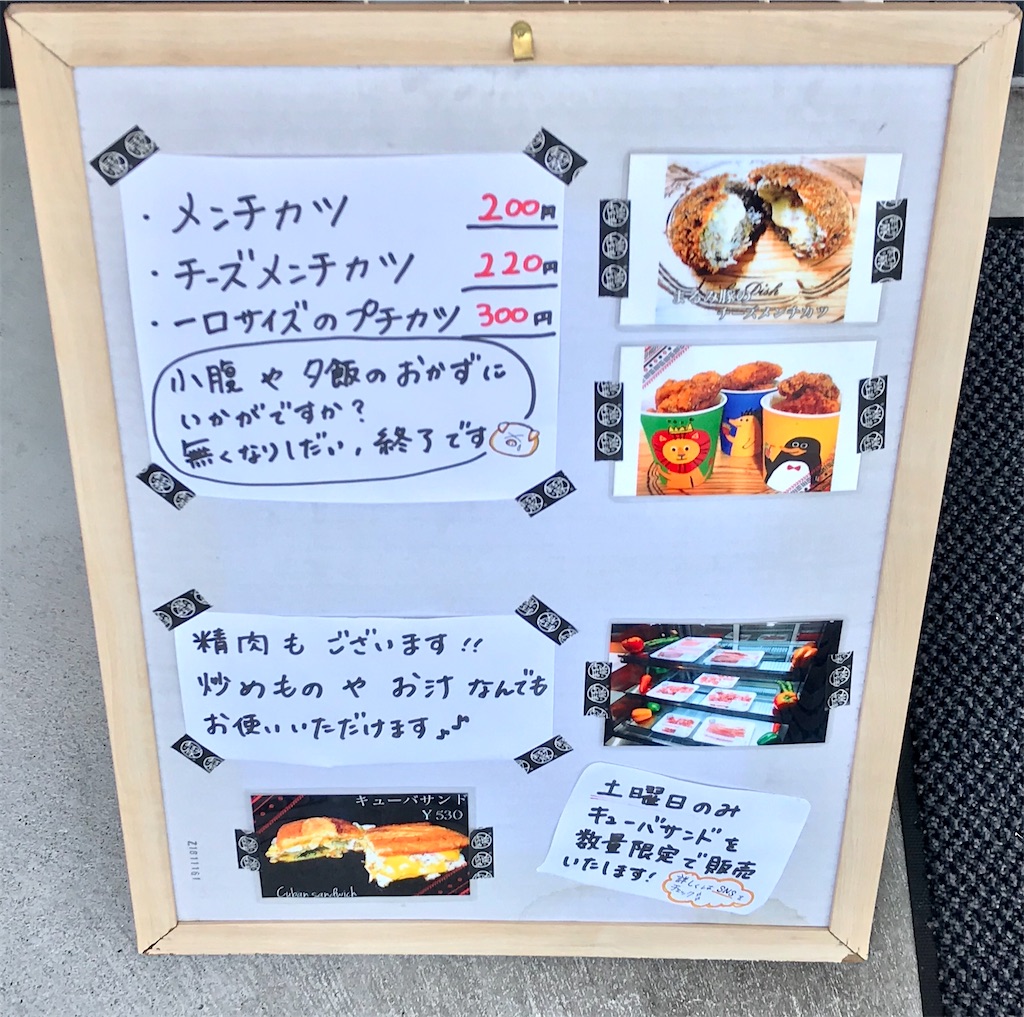 ・メンチカツ 200円
・チーズメンチカツ 220円
・一口サイズのプチカツ 300円
小腹や夕飯のおかずに
いかがですか？
無くなりしだい,終了です
まるみ豚の Dish
チーズメンチカツ
精肉もございます!!
炒めものやお汁なんでも
お使いいただけます♪
キューバサンド
￥530
Cuban sandwich
土曜日のみ
キューバサンドを
数量限定で販売
いたします!
詳しくは SNSを
チェック
Z1811161